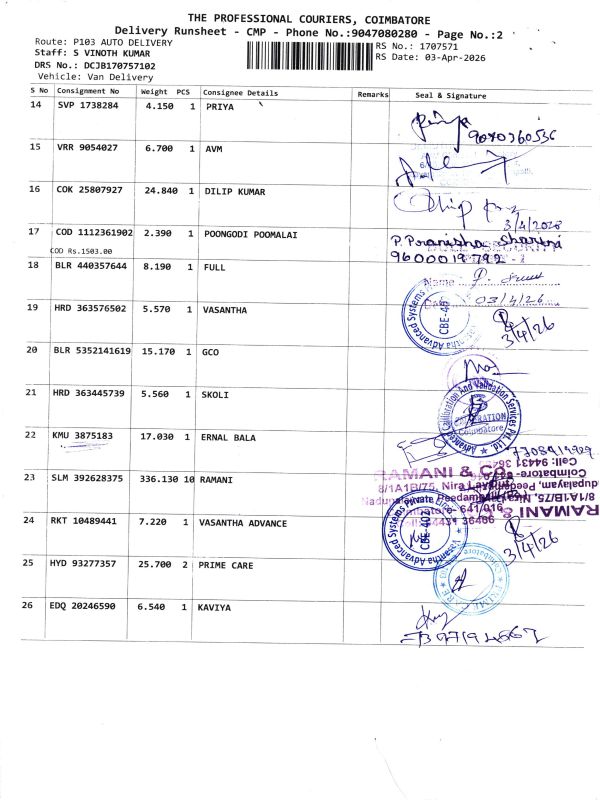 THE PROFESSIONAL COURIERS, COIMBATORE
Delivery Runsheet - CMP - Phone No.:9047080280 - Page No.:2
Route: P103 AUTO DELIVERY
RS No.: 1707571
Staff: S VINOTH KUMAR
RS Date: 03-Apr-2026
DRS No.: DCJB170757102
Vehicle: Van Delivery
S No Consignment No Weight PCS Consignee Details Remarks Seal & Signature
14 SVP 1738284 4.150 1 PRIYA
Priya
15 VRR 9054027 6.700 1 AVM
16 COK 25807927 24.840 1 DILIP KUMAR
Dilip
17 COD 1112361902 2.390 1 POONGODI POOMALAI
COD Rs.1503.00
P. Poranisha Sharini
9600019792
18 BLR 440357644 8.190 1 FULL
Name
03/4/26
19 HRD 363576502 5.570 1 VASANTHA
CBE-407
3/4/26
20 BLR 5352141619 15.170 1 GCO
21 HRD 363445739 5.560 1 SKOLI
Advanced Calibration And Validation Services Pvt. Ltd
CALIBRATION
Coimbatore
22 KMU 3875183 17.030 1 ERNAL BALA
23 SLM 392628375 336.130 10 RAMANI
RAMANI & CO
8/1A1B/75, Nira
Coimbatore- 641 016
Cell: 94431 36466
24 RKT 10489441 7.220 1 VASANTHA ADVANCE
Vasantha Advanced Systems Private Limited
CBE-407
3/4/26
25 HYD 93277357 25.700 2 PRIME CARE
PRIME CARE
Coimbatore
26 EDQ 20246590 6.540 1 KAVIYA